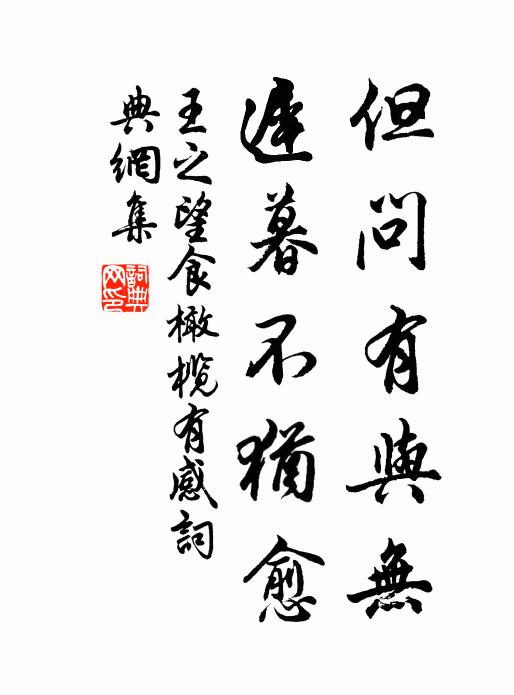 但問有與無
遲暮不猶愈
王之望食橄欖有感詞
典網集
詞典
网印